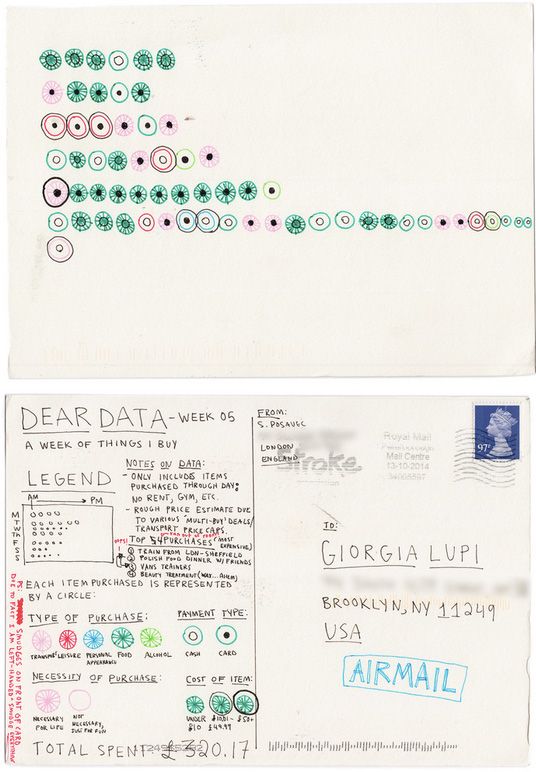 DEAR DATA - WEEK 05
A WEEK OF THINGS I BUY
LEGEND
AM → PM
M
T
W
Th
F
S
S
NOTES ON DATA:
- ONLY INCLUDES ITEMS
PURCHASED THROUGH DAY:
NO RENT, GYM, ETC.
- ROUGH PRICE ESTIMATE DUE
TO VARIOUS 'MULTI-BUY' DEALS/
TRANSPORT PRICE CAPS.
OOPS! RAN OUT OF ROOM
TOP 4 PURCHASES (MOST
EXPENSIVE)
① TRAIN FROM LDN-SHEFFIELD
② POLISH FOOD DINNER W/FRIENDS
③ VANS TRAINERS
④ BEAUTY TREATMENT
EACH ITEM PURCHASED IS REPRESENTED
BY A CIRCLE:
TYPE OF PURCHASE:
TRANSPORT
LEISURE
PERSONAL
APPEARANCE
FOOD
ALCOHOL
PAYMENT TYPE:
CASH
CARD
NECESSITY OF PURCHASE:
NECESSARY
FOR LIFE
NOT
NECESSARY,
JUST FOR FUN
COST OF ITEM:
UNDER
£10
£10.01-
£49.99
£50+
TOTAL SPENT: £320.17
PS: SMUDGES ON FRONT OF CARD
DUE TO FACT I AM LEFT-HANDED + SMUDGE EVERYTHING
FROM:
S. POSAVEC
LONDON
ENGLAND
Stroke
Royal Mail
Mail Centre
13-10-2014
97P
TO:
GIORGIA LUPI
BROOKLYN, NY 11249
USA
AIRMAIL